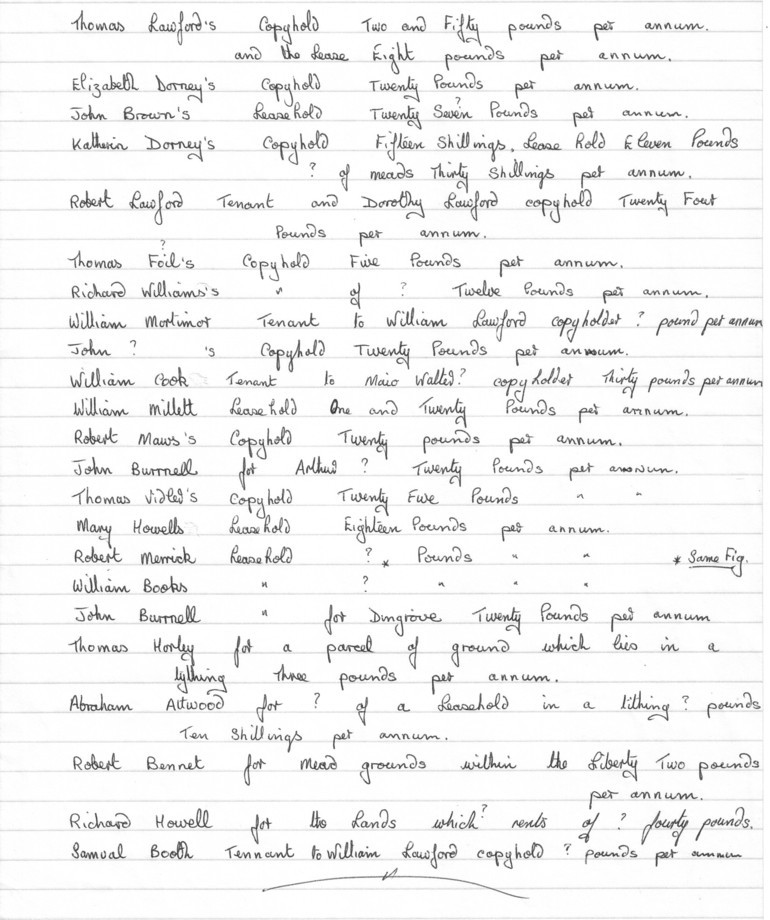 Thomas Lawford's Copyhold Two and Fifty pounds per annum.
and the Lease Eight pounds per annum.
Elizabeth Dorney's Copyhold Twenty Pounds per annum.
John Brown's Leasehold Twenty Seven? Pounds per annum.
Katherin Dorney's Copyhold Fifteen Shillings, Lease hold Eleven Pounds
? of meads Thirty Shillings per annum.
Robert Lawford Tenant and Dorothy Lawford copyhold Twenty Four
Pounds per annum.
Thomas Foil's? Copyhold Five Pounds per annum.
Richard Williams's " of ? Twelve Pounds per annum.
William Mortimor Tenant to William Lawford copyholder ? pound per annum
John ? 's Copyhold Twenty Pounds per annum.
William Cook Tenant to Maio Walter? copyholder Thirty pounds per annum
William Millett Leasehold One and Twenty Pounds per annum.
Robert Maws's Copyhold Twenty pounds per annum.
John Burrnell for Arthur ? Twenty Pounds per annum.
Thomas Copyhold Twenty Five Pounds " "
Mary Howells Leasehold Eighteen Pounds per annum.
Robert Merrick Leasehold ? * Pounds " " * Same Fig.
William Books " ? " " "
John Burrnell " for Dingrove Twenty Pounds per annum
Thomas Horley for a parcel of ground which lies in a
tything Three pounds per annum.
Abraham Attwood for ? of a Leasehold in a tithing ? pounds
Ten Shillings per annum.
Robert Bennet for Mead grounds within the Liberty Two pounds
per annum.
Richard Howell for the Lands which? rents of ? fourty pounds.
Samual Booth Tennant to William Lawford copyhold ? pounds per annum